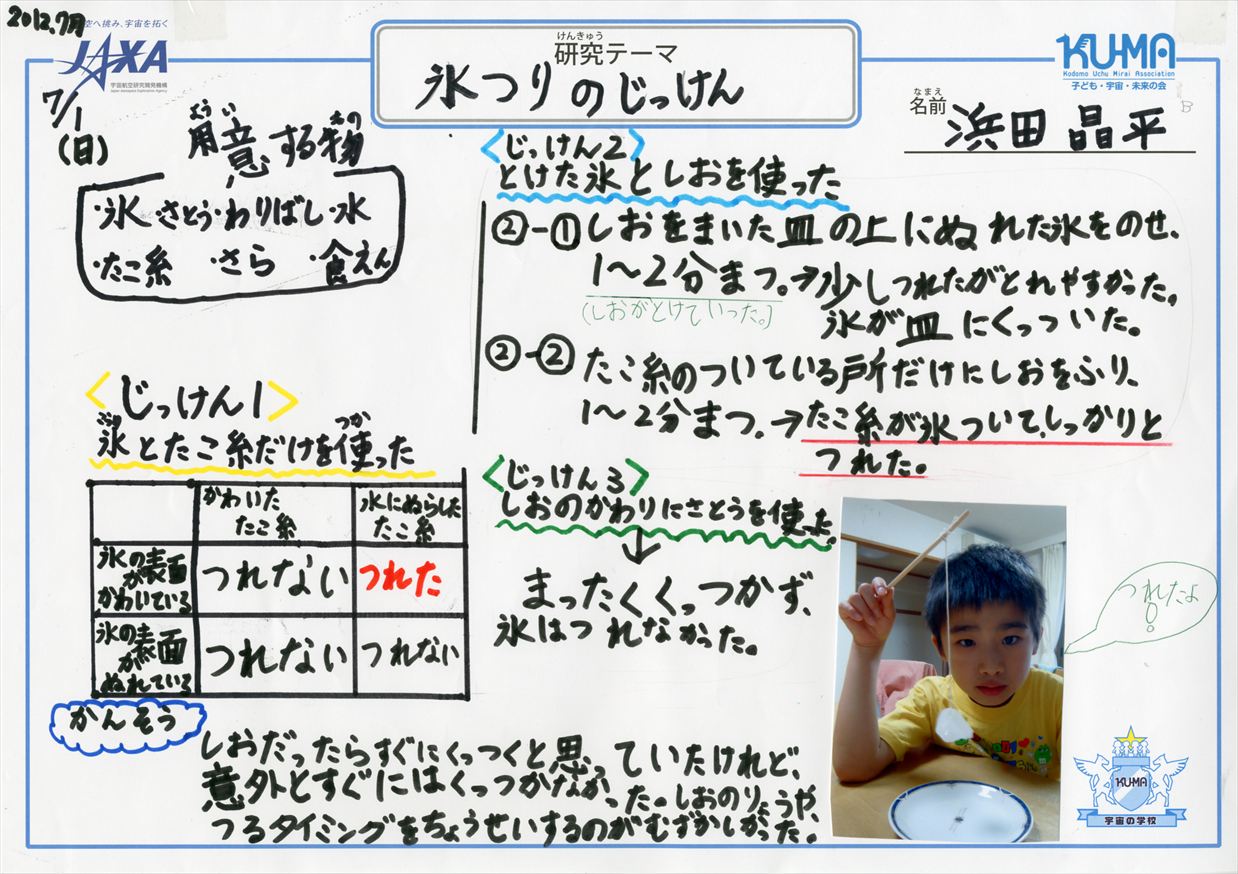 2012.7月
空へ挑み、宇宙を拓く
JAXA
宇宙航空研究開発機構
Japan Aerospace Exploration Agency
けんきゅう
研究テーマ
氷つりのじっけん
KU-MA
Kodomo Uchu Mirai Association
子ども・宇宙・未来の会
なまえ
名前 浜田 晶平
B
7/1
(日)
用意する物
・氷・さとう・わりばし・水
・たこ糸 ・さら ・食えん
<じっけん1>
こおり つか
氷とたこ糸だけを使った
かわいた
たこ糸
水にぬらした
たこ糸
氷の表面
が
かわいている
つれない
つれた
氷の表面
が
ぬれている
つれない
つれない
<じっけん2>
とけた氷としおを使った
②-①しおをまいた皿の上にぬれた氷をのせ、
1〜2分まつ。→少しつれたがとれやすかった。
(しおがとけていった。)
氷が皿にくっついた。
②-②たこ糸のついている所だけにしおをふり、
1〜2分まつ。→たこ糸が氷ついて、しっかりと
つれた。
<じっけん3>
しおのかわりにさとうを使った。
↓
まったくくっつかず、
氷はつれなかった。
つれたよ
!
かんそう
しおだったらすぐにくっつくと思っていたけれど、
意外とすぐにはくっつかなかった。しおのりょうや、
つるタイミングをちょうせいするのがむずかしかった。
KU-MA
宇宙の学校